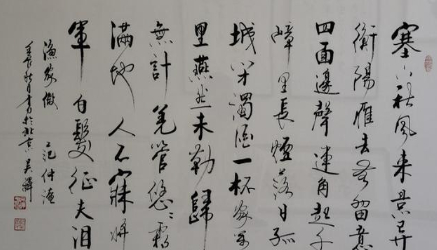 塞下秋风来景异
衡陽雁去无留意
四面邊聲連角起千
嶂里長煙落日孤
城闭濁酒一杯家萬
里燕然未勒歸
無計羌管悠悠霜
满地人不寐将
軍白髮征夫泪
漁家傲 范仲淹
秋月书於北京